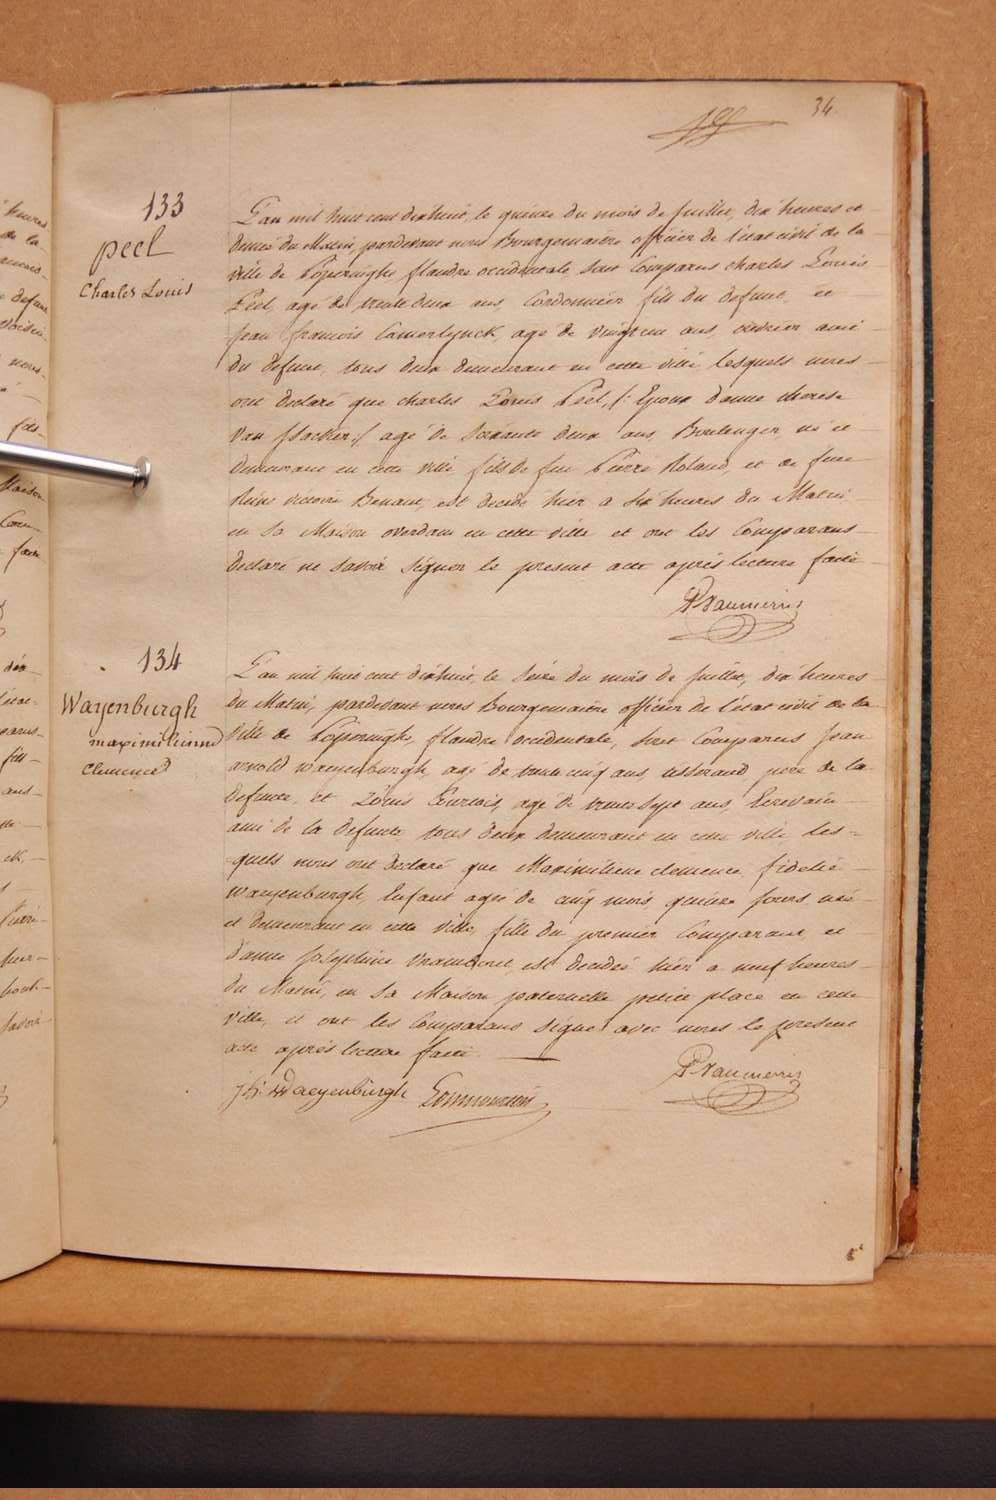 34
133
peel
Charles Louis
L'an mil huit cent dixhuit, le quinze du mois de juillet, dix heures et
demie du Matin, pardevant nous Bourgemaitre officier de l'état civil de la
ville de Poperinghe, flandre occidentale, sont Comparus charles Louis
Peel, agé de trente deux ans, Cordonnier, fils du defunt, et
jean francois Camerlynck, agé de vingt un ans, ouvrier ami
du defunt, tous deux demeurant en cette ville lesquels nous
ont declaré que charles Louis Peel, /: Epoux d'anne therese
Van :/ agé de soixante deux ans, Boulanger, né et
demeurant en cette ville fils de feu Pierre Roland, et de feue
Reine victoire Benaut, est decedé hier a six heures du Matin
en sa Maison overdam en cette ville et ont les Comparans
declaré ne savoir signer le present acte après lecture faite
134
Wayenburgh
maximilienne
clemence
L'an mil huit cent dixhuit, le seize du mois de juillet, dix heures
du Matin, pardevant nous Bourgemaitre officier de l'état civil de la
ville de Poperinghe, flandre occidentale, sont Comparus jean
arnold waeyenburgh, agé de trente cinq ans tisserand, pere de la
defunte, et Louis Courtois, agé de trente sept ans, Ecrivain
ami de la defunte tous deux demeurant en cette ville, les=
=quels nous ont declaré que Maximiliene clemence, fidelie
waeyenburgh, Enfant agée de cinq mois, quinze jours née
et demeurant en cette ville, fille du premier Comparant et
d'anne josephine est decedée hier a neuf heures
du Matin, en sa Maison paternelle petite place en cette
ville, et ont les Comparans signé avec nous le present
acte après lecture faite.
Waeyenburgh